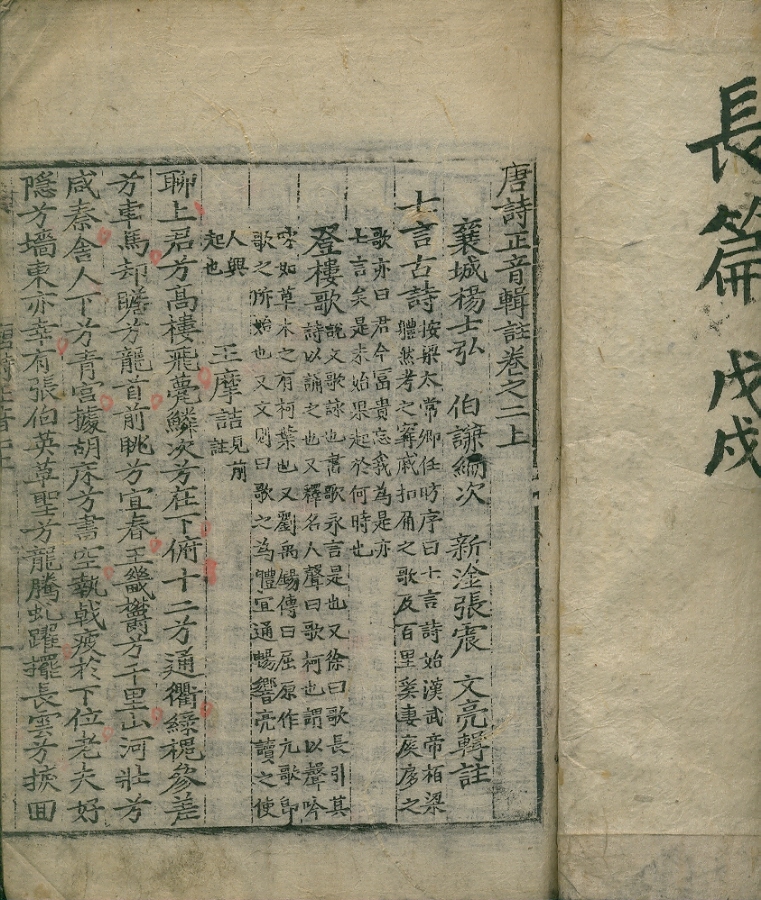 長篇 戊戌
唐詩正音輯註卷之二上
襄城楊士弘 伯謙編次 新淦張震 文亮輯註
七言古詩
按梁太常卿任昉序曰七言詩始漢武帝栢梁
體然考之甯戚扣角之歌及百里奚妻扊扅之
歌亦曰君今富貴忘我為是亦
七言矣是未始果起於何時也
登樓歌
說文歌詠也書歌永言是也又徐曰歌長引其
詩以誦之也又釋名人聲曰歌柯也謂以聲吟
咏如草木之有柯葉也又劉禹錫傳曰屈原作九歌即
歌之所始也又文則曰歌之為體宜通暢響亮讀之使
人興
起也
王摩詰見前註
聊上君兮高樓飛甍鱗次兮在下俯十二兮通衢綠槐參差
兮車馬却瞻兮龍首前眺兮宜春王畿欝兮千里山河壯兮
咸秦舍人下兮青宮據胡床兮書空執戟疲於下位老夫好
隱兮墻東亦幸有張伯英草聖兮龍騰虬躍擺長雲兮捩回